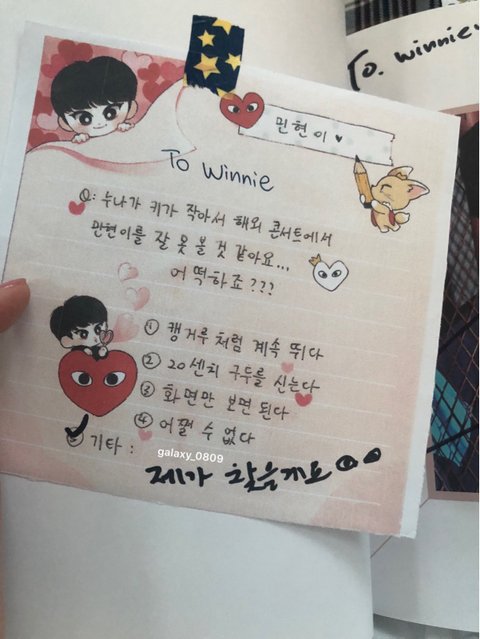 To. winnie
민현이 ♥
To Winnie
Q: 누나가 키가 작아서 해외 콘서트에서
민현이를 잘 못 볼 것 같아요...
어떡하죠???
① 캥거루처럼 계속 뛰다
② 20센치 구두를 신는다
③ 화면만 보면 된다
④ 어쩔 수 없다
✓ 기타 :
galaxy_0809
제가 찾을게요